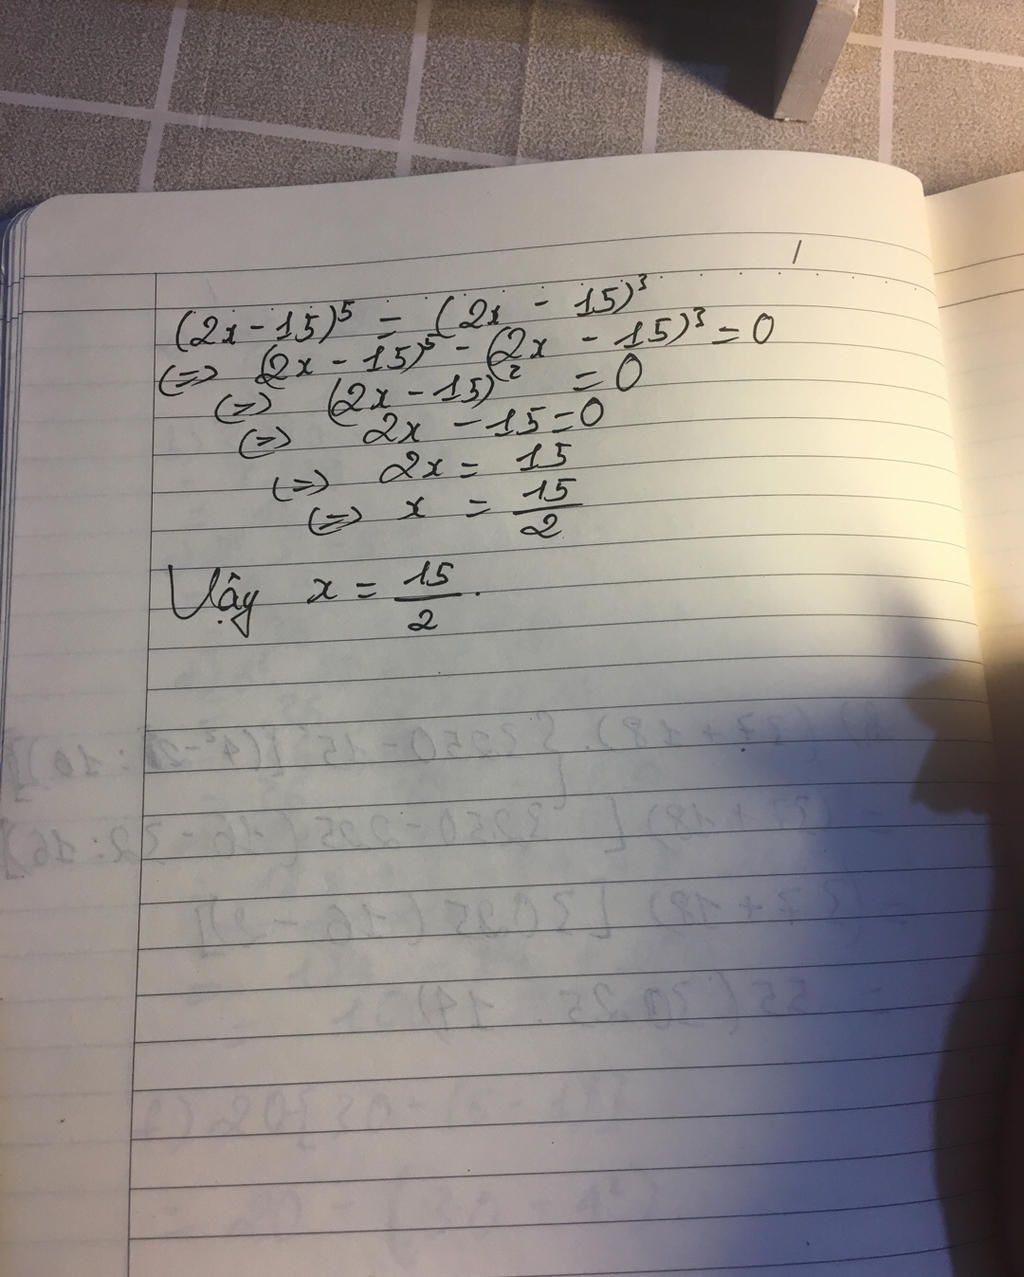 (2x - 15)⁵ = (2x - 15)³
(=) (2x - 15)⁵ - (2x - 15)³ = 0
(=) (2x - 15)² = 0
(=) 2x - 15 = 0
(=) 2x = 15
(=) x = 15/2
Vậy x = 15/2.